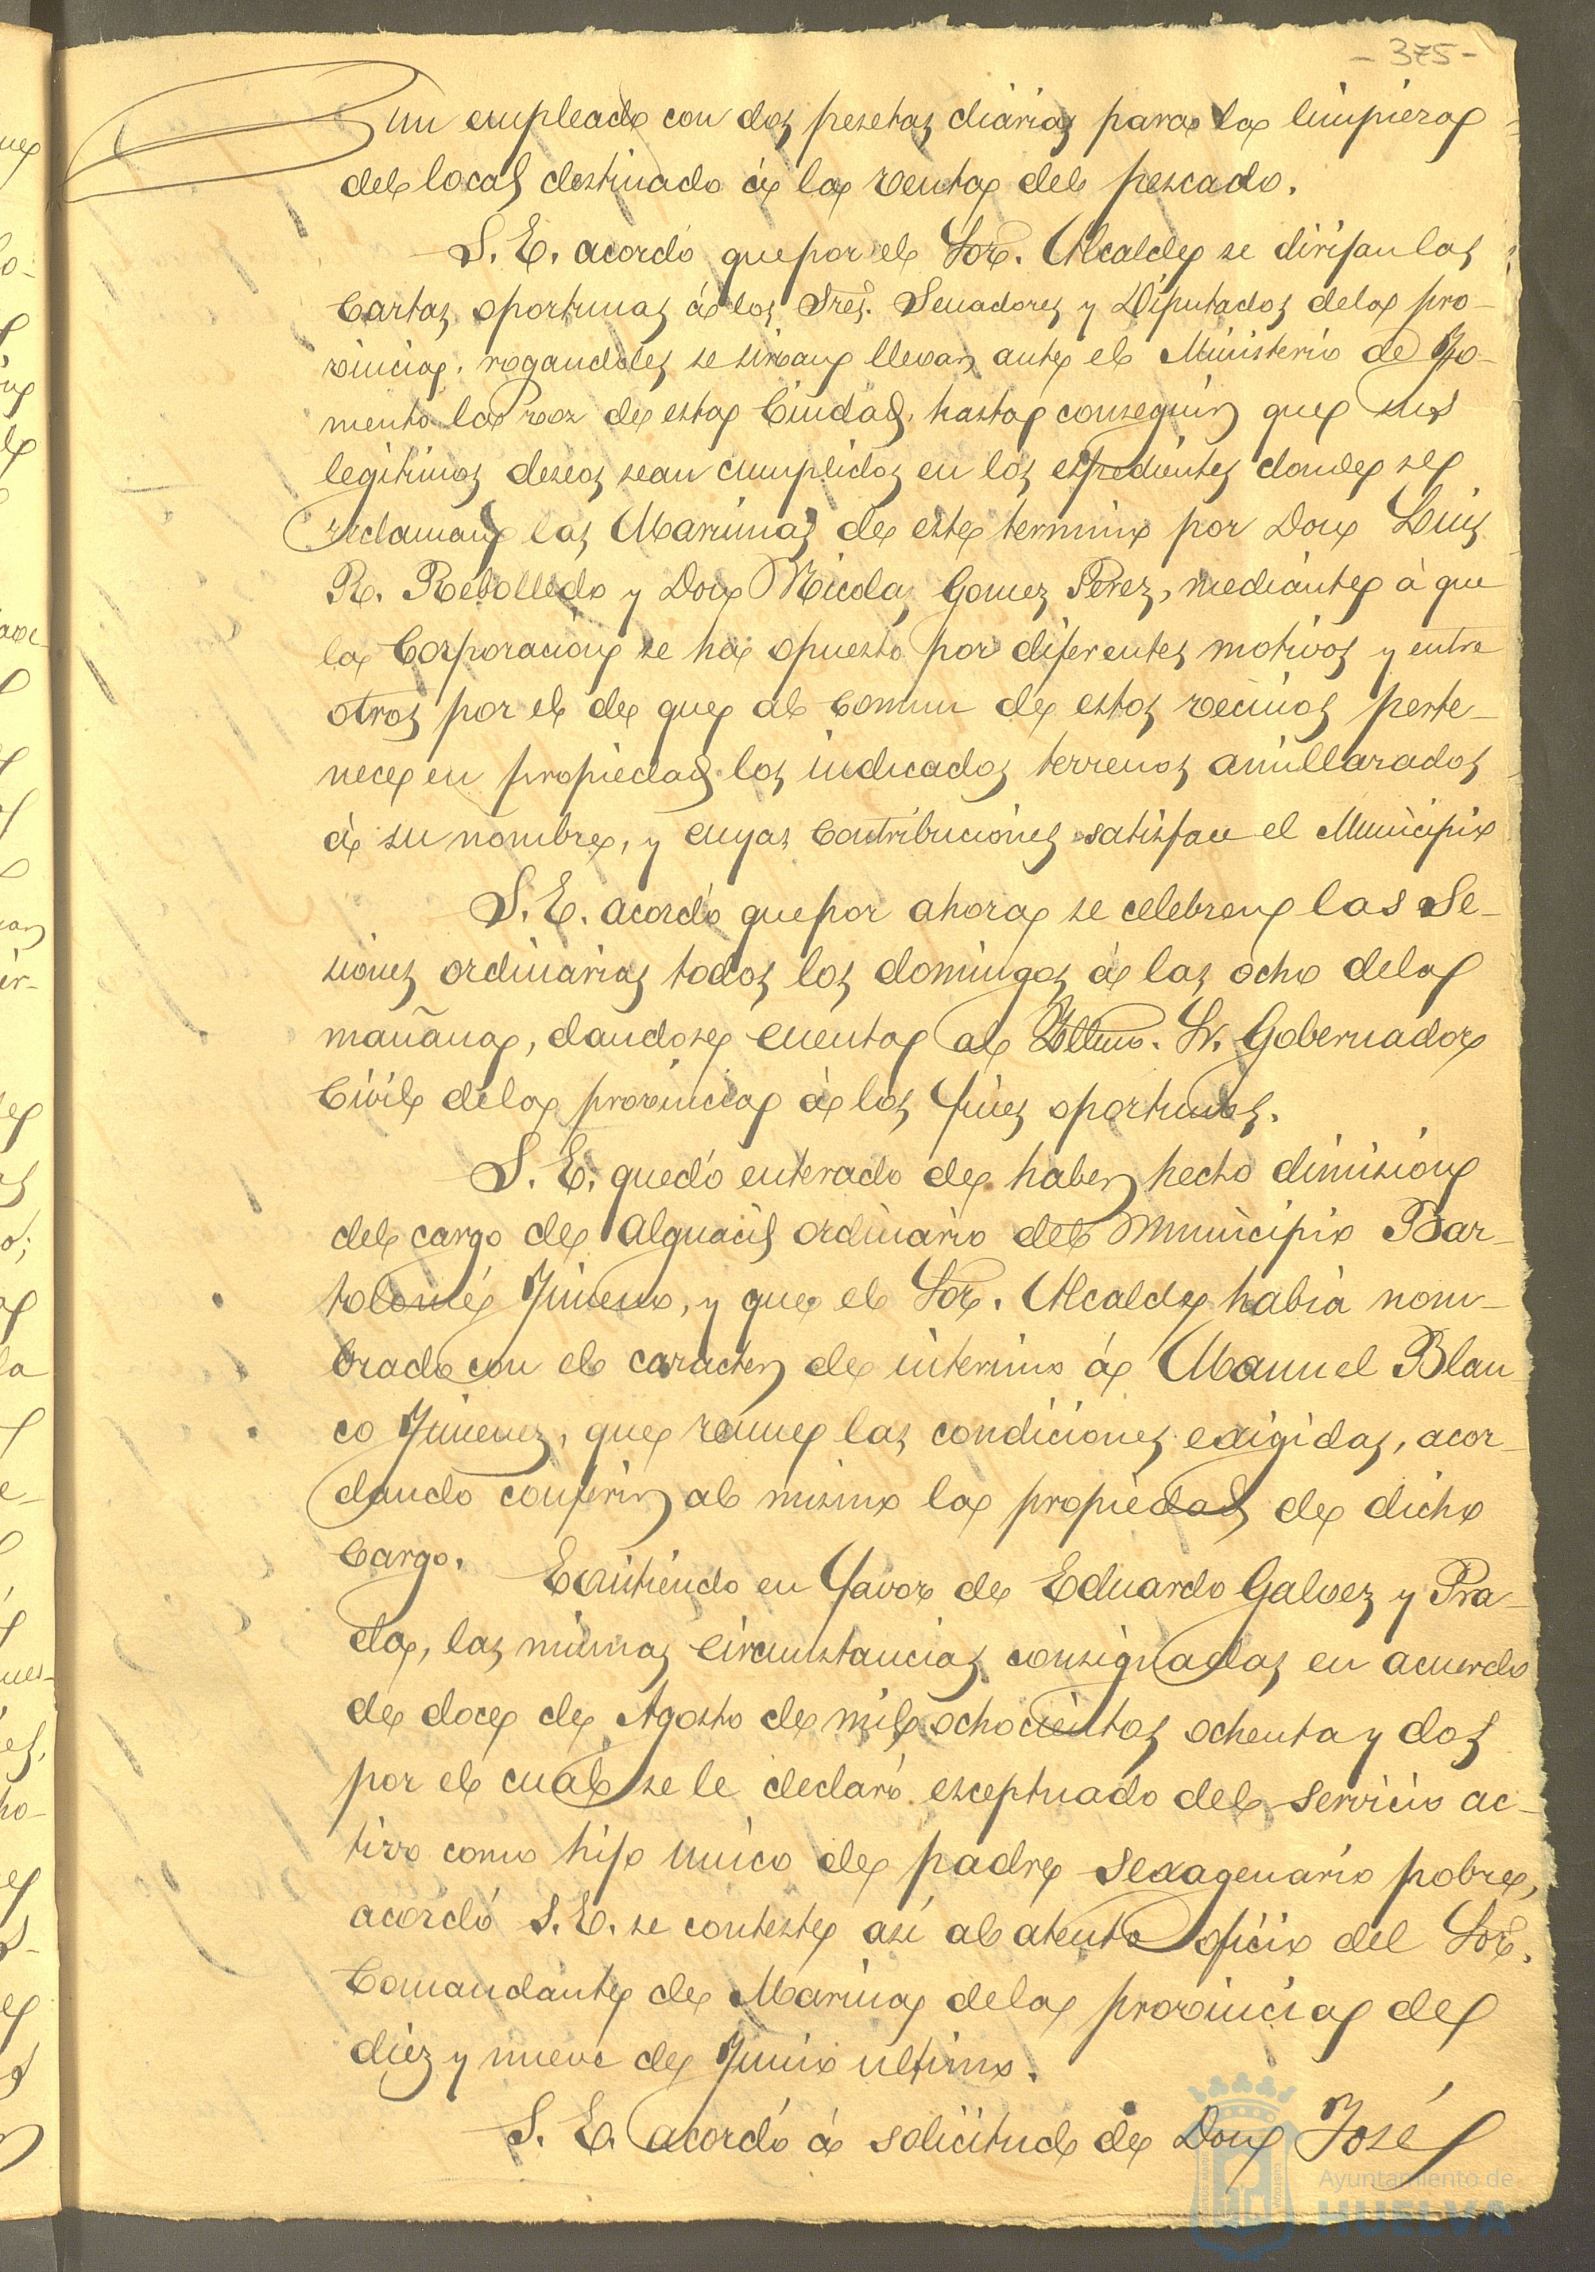 - 375 -
un empleado con dos pesetas diarias para la limpieza
del local destinado á la venta del pescado.
S. E. acordó que por el Sor. Alcalde se dirijan las
cartas oportunas á los Sres. Senadores y Diputados de la pro-
vincia, rogandoles se sirvan llevar ante el Ministerio de Fo-
mento la voz de esta Ciudad, hasta conseguir que sus
legitimos deseos sean cumplidos en los espedientes donde se
reclaman las Marismas de este termino por Don Luis
R. Rebolledo y Don Nicolas Gomez Perez, mediante á que
la Corporacion se ha opuesto por diferentes motivos y entre
otros por el de que al comun de estos vecinos perte-
nece en propiedad los indicados terrenos amillarados
á su nombre, y cuyas contribuciones satisface el Municipio
S. E. acordó que por ahora se celebren las Se-
siones ordinarias todos los domingos á las ocho de la
mañana, dandose cuenta al Illmo. Sr. Gobernador
Civil de la provincia á los fines oportunos.
S. E. quedó enterado de haber hecho dimision
del cargo de Alguacil ordinario del Municipio Bar-
tolomé Jimeno, y que el Sor. Alcalde habia nom-
brado con el caracter de interino á Manuel Blan
co Jimenez, que reune las condiciones exigidas, acor-
dando conferir al mismo la propiedad de dicho
cargo.
Existiendo en favor de Eduardo Galvez y Pra-
da, las mismas circunstancias consignadas en acuerdo
de doce de Agosto de mil ochocientos ochenta y dos
por el cual se le declaró esceptuado del servicio ac-
tivo como hijo unico de padre sexagenario pobre,
acordó S. E. se conteste asi al atento oficio del Sor.
Comandante de Marina de la provincia de
diez y nueve de Junio ultimo.
S. E. acordó á solicitud de Don José
Ayuntamiento de
HUELVA